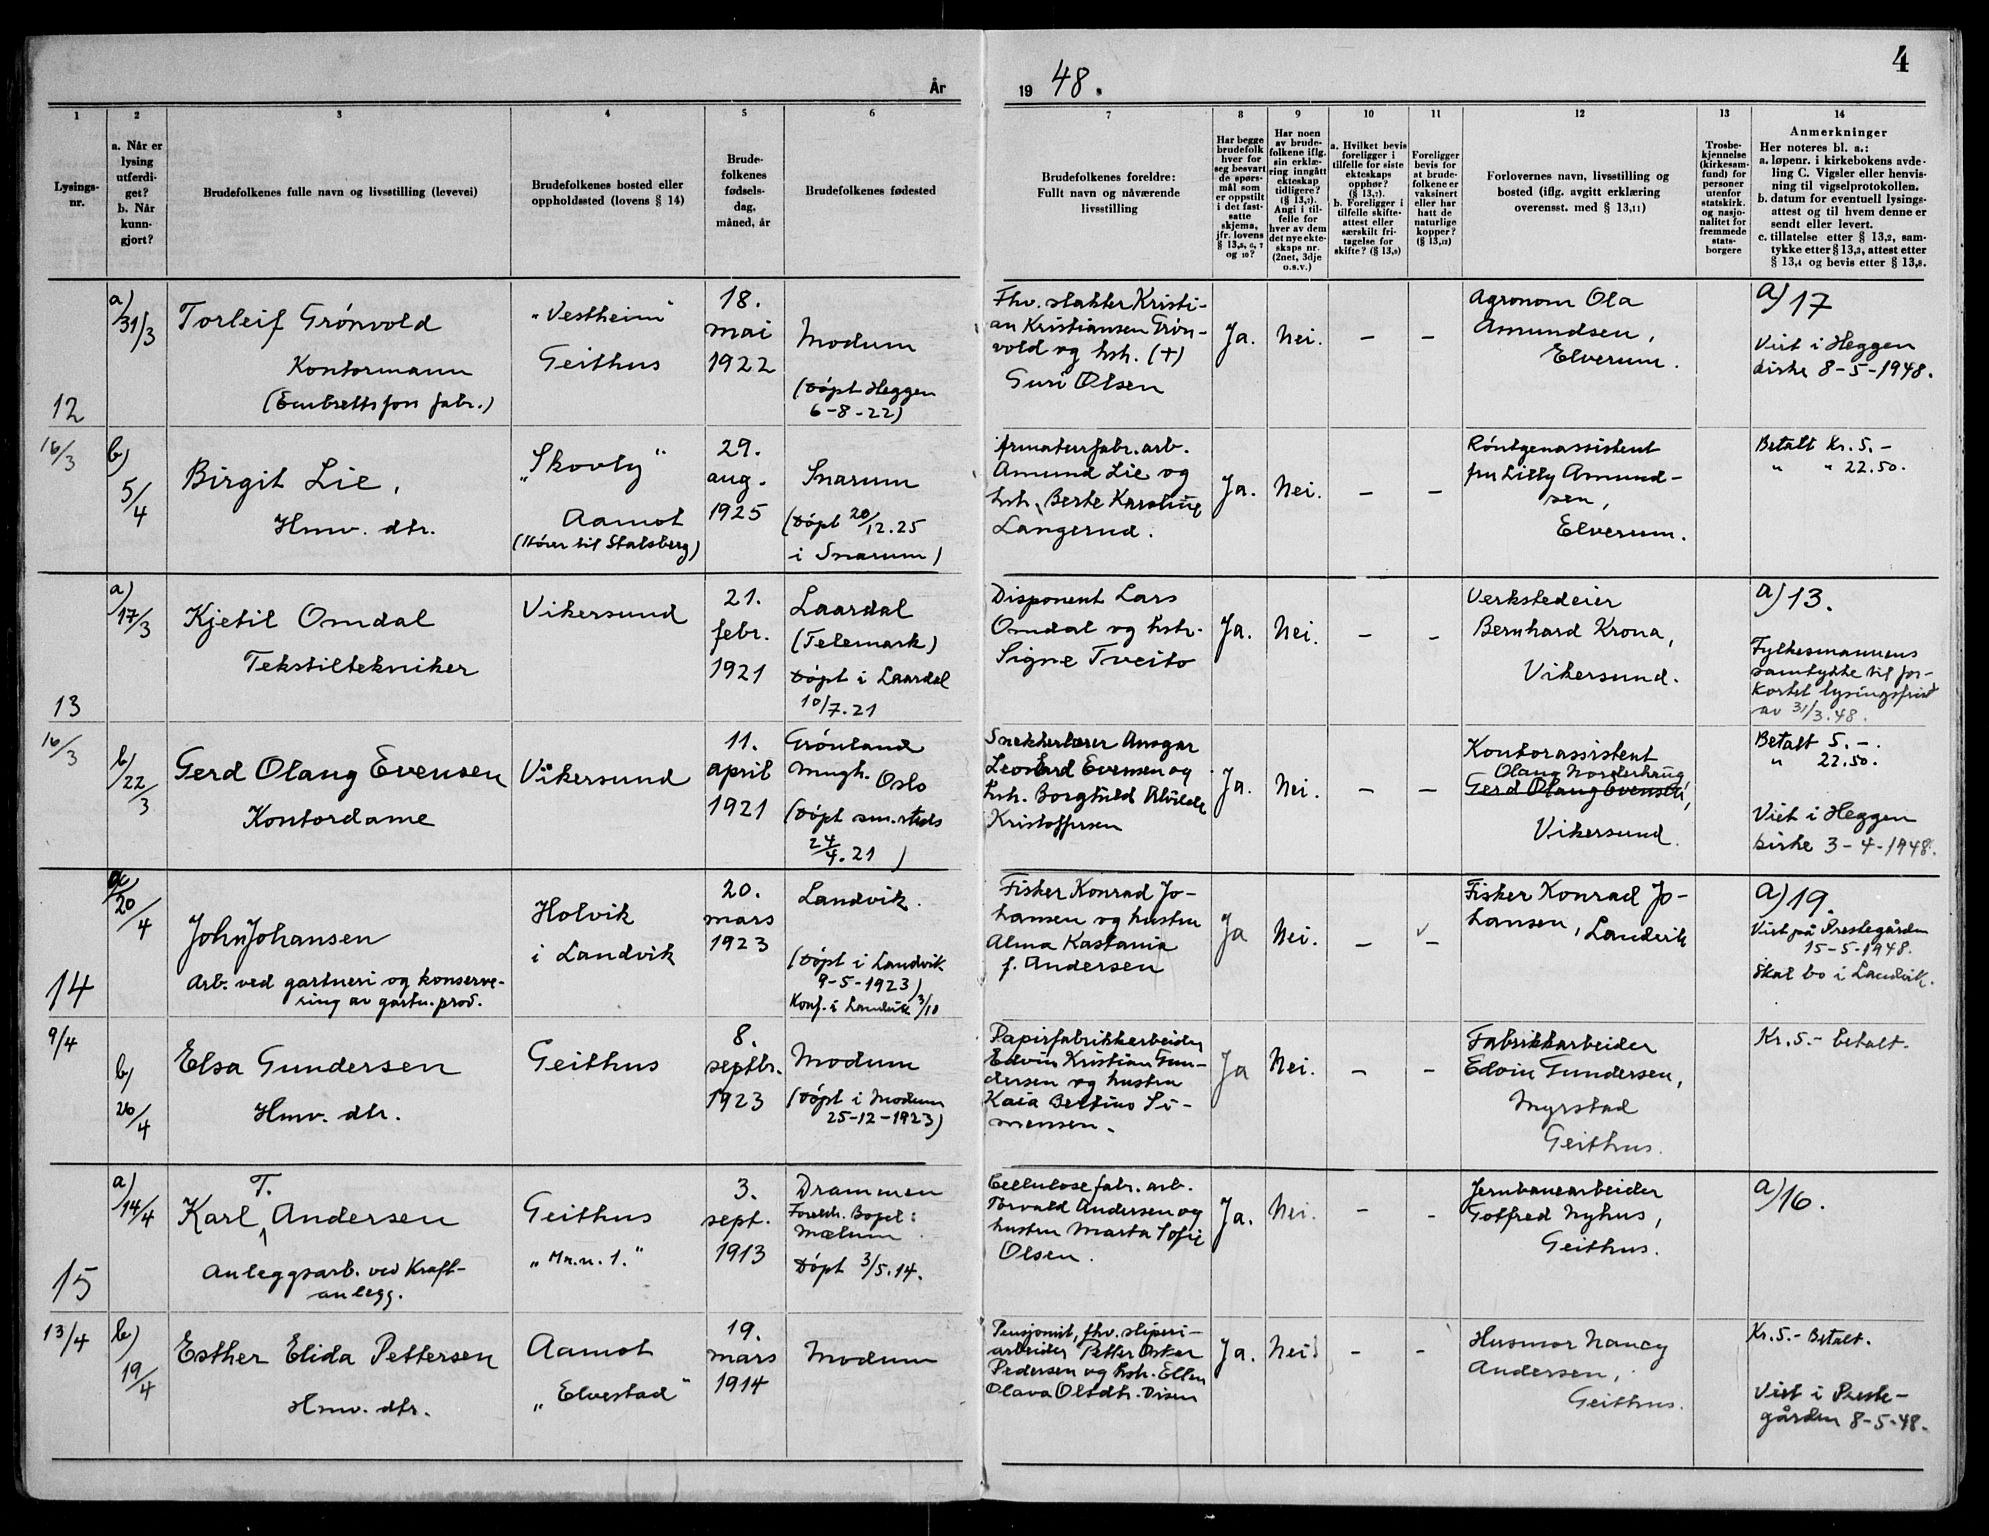 År 1948.
4
1
2
3
4
5
6
7
8
9
10
11
12
13
14
Lysings-
nr.
a. Når er
lysing
utferdi-
get?
b. Når
kunn-
gjort?
Brudefolkenes fulle navn og livsstilling (levevei)
Brudefolkenes bosted eller
oppholdssted (lovens § 14)
Brude-
folkenes
fødsels-
dag,
måned, år
Brudefolkenes fødested
Brudefolkenes foreldre:
Fullt navn og nåværende
livsstilling
Har begge
brudefolk
hver for
seg besvart
de spørs-
mål som
er oppstilt
i det fast-
satte
skjema,
jfr. lovens
§ 13,5, 6, 7
og 10?
Har noen
av brude-
folkene iflg.
sin erklæ-
ring inngått
ekteskap
tidligere?
(§ 13,7).
Angi i til-
felle for
hver av dem
det nye ekte-
skaps nr.
(2net, 3dje
o.s.v.)
a. Hvilket bevis
foreligger i
tilfelle for siste
ekteskaps
opphør?
(§ 13,7).
b. Foreligger i
tilfelle skifte-
attest eller
særskilt fri-
tagelse for
skifte? (§ 13,9)
Foreligger
bevis for
at brude-
folkene er
vaksinert
eller har
hatt de
naturlige
kopper?
(§ 13,12)
Forlovernes navn, livsstilling og
bosted (iflg. avgitt erklæring
overensst. med § 13,11)
Trosbe-
kjennelse
(kirkesam-
fund) for
personer
utenfor
statskirk.
og nasjo-
nalitet for
fremmede
stats-
borgere
Anmerkninger
Her noteres bl. a.:
a. løpenr. i kirkebokens avde-
ling C. Vigsler eller henvis-
ning til vigselprotokollen.
b. datum for eventuell lysings-
attest og til hvem denne er
sendt eller levert.
c. tillatelse etter § 13,2, sam-
tykke etter § 13,3, attest etter
§ 13,4 og bevis etter § 13,8.
12
a) 31/3
Torleif Grönvold
Kontormann
(Embretsfoss fabr.)
"Vestheim"
Geithus
18.
mai
1922
Modum
(Döpt Heggen
6-8-22)
Fhv. slakter Kristi-
an Kristiansen Grön-
vold og hsh. (+)
Guri Olsen
Ja.
Nei.
–
–
Agronom Ola
Amundsen,
Elverum.
a) 17
Viet i Heggen
kirke 8-5-1948.
16/3
b) 5/4
Birgit Lie,
Hmv. dtr.
"Skovly"
Aamot
(Hörer til Stalsberg)
29.
aug.
1925
Snarum
(Döpt 20/12.25
i Snarum)
Armaturfabr. arb.
Amund Lie og
hsh. Berte Karoline
Langerud.
Ja.
Nei.
–
–
Röntgenassistent
fru Lilly Amund-
sen,
Elverum.
Betalt Kr. 5.-
" " 22.50.
13
a) 17/3
Kjetil Omdal
Tekstiltekniker
Vikersund
21.
febr.
1921
Laardal
(Telemark)
Döpt i Laardal
10/7.21
Disponent Lars
Omdal og hsh.
Signe Tveito
Ja.
Nei.
–
–
Verkstedeier
Bernhard Krona,
Vikersund.
a) 13.
Fylkesmannens
samtykke til for-
kortet lysingsfrist
av 31/3.48.
16/3
b) 22/3
Gerd Olaug Evensen
Kontordame
Vikersund
11.
april
1921
Grönland
mngh. Oslo
(Döpt sm. steds
24/4.21)
Snekkerlærer Ansgar
Leonard Evensen og
hsh. Borghild Alvilde
Kristoffersen
Ja.
Nei.
–
–
Kontorassistent
Olaug Norderhaug
Gerd Olaug Evensen,
Vikersund.
Betalt 5.-.
" 22.50.
Viet i Heggen
kirke 3-4-1948.
14
a) 20/4
John Johansen
Arb. ved gartneri og konserve-
ring av gartn. prod.
Holvik
i Landvik
20.
mars
1923
Landvik.
(Döpt i Landvik
9-5-1923)
Konf. i Landvik 3/10
Fisker Konrad Jo-
hansen og hustru
Alma Kastania
f. Andersen
Ja
Nei.
–
–
Fisker Konrad Jo-
hansen, Landvik
a) 19.
Viet på Prestegården
15-5-1948.
Skal bo i Landvik.
9/4
b) 26/4
Elsa Gundersen
Hmv. dtr.
Geithus
8.
septbr.
1923
Modum
(Döpt i Modum
25-12-1923)
Papirfabrikkarbeider
Edvin Kristian Gun-
dersen og hustru
Kaia Bertine Si-
mensen.
Ja
Nei.
–
–
Fabrikkarbeider
Edvin Gundersen,
Myrstad
Geithus.
Kr. 5.- betalt.
15
a) 14/4
T.
Karl Andersen
Anleggsarb. ved Kraft-
anlegg.
Geithus
"Mn. n. 1."
3.
sept.
1913
Drammen
Foreldr. Bopel:
Mælum
Döpt 3/5.14.
Cellulosefabr. arb.
Torvald Andersen og
hustru Marta Sofie
Olsen.
Ja.
Nei.
–
–
Jernbanearbeider
Gotfred Nyhus,
Geithus.
a) 16.
13/4
b) 19/4
Esther Elida Pettersen
Hmv. dtr.
Aamot
"Elvestad"
19.
mars
1914
Modum
Pensjonist, fhv. sliperi-
arbeider Petter Oskar
Pedersen og hsh. Ellen
Olava Olsdtr. Disen
Ja.
Nei
–
–
Husmor Nancy
Andersen,
Geithus.
Kr. 5.- Betalt.
Viet i Preste-
gården 8-5-48.